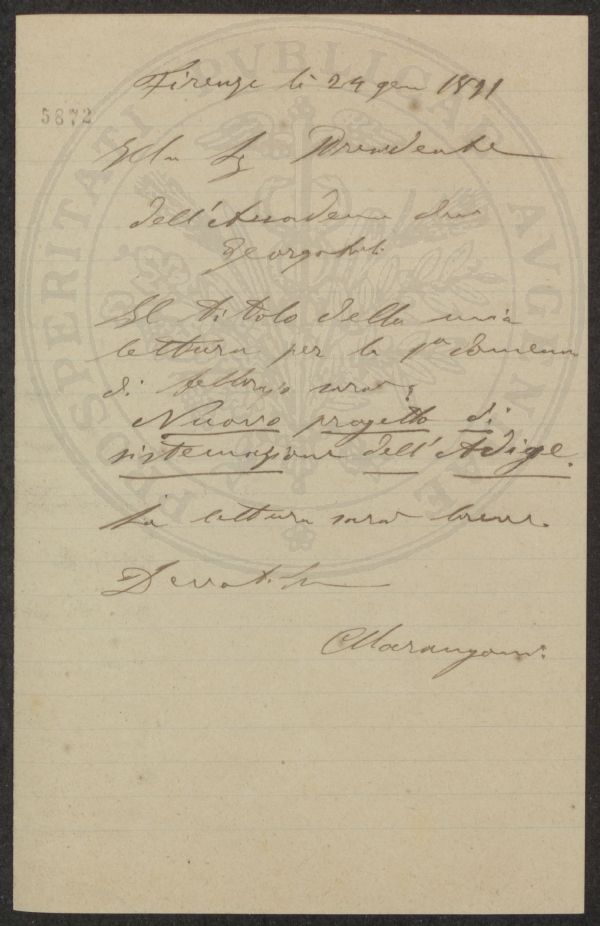 Firenze li 29 gen 1891
5872
Ill.mo Sig Presidente
dell'Accademia dei
Georgofili
Il titolo della mia
lettura per la 1a domenica
di febbraio sarà:
Nuovo progetto di
sistemazione dell'Adige.
La lettura sarà breve.
Devotissimo
C Marangoni
PROSPERITATI PVBLICAE AVGENDAE